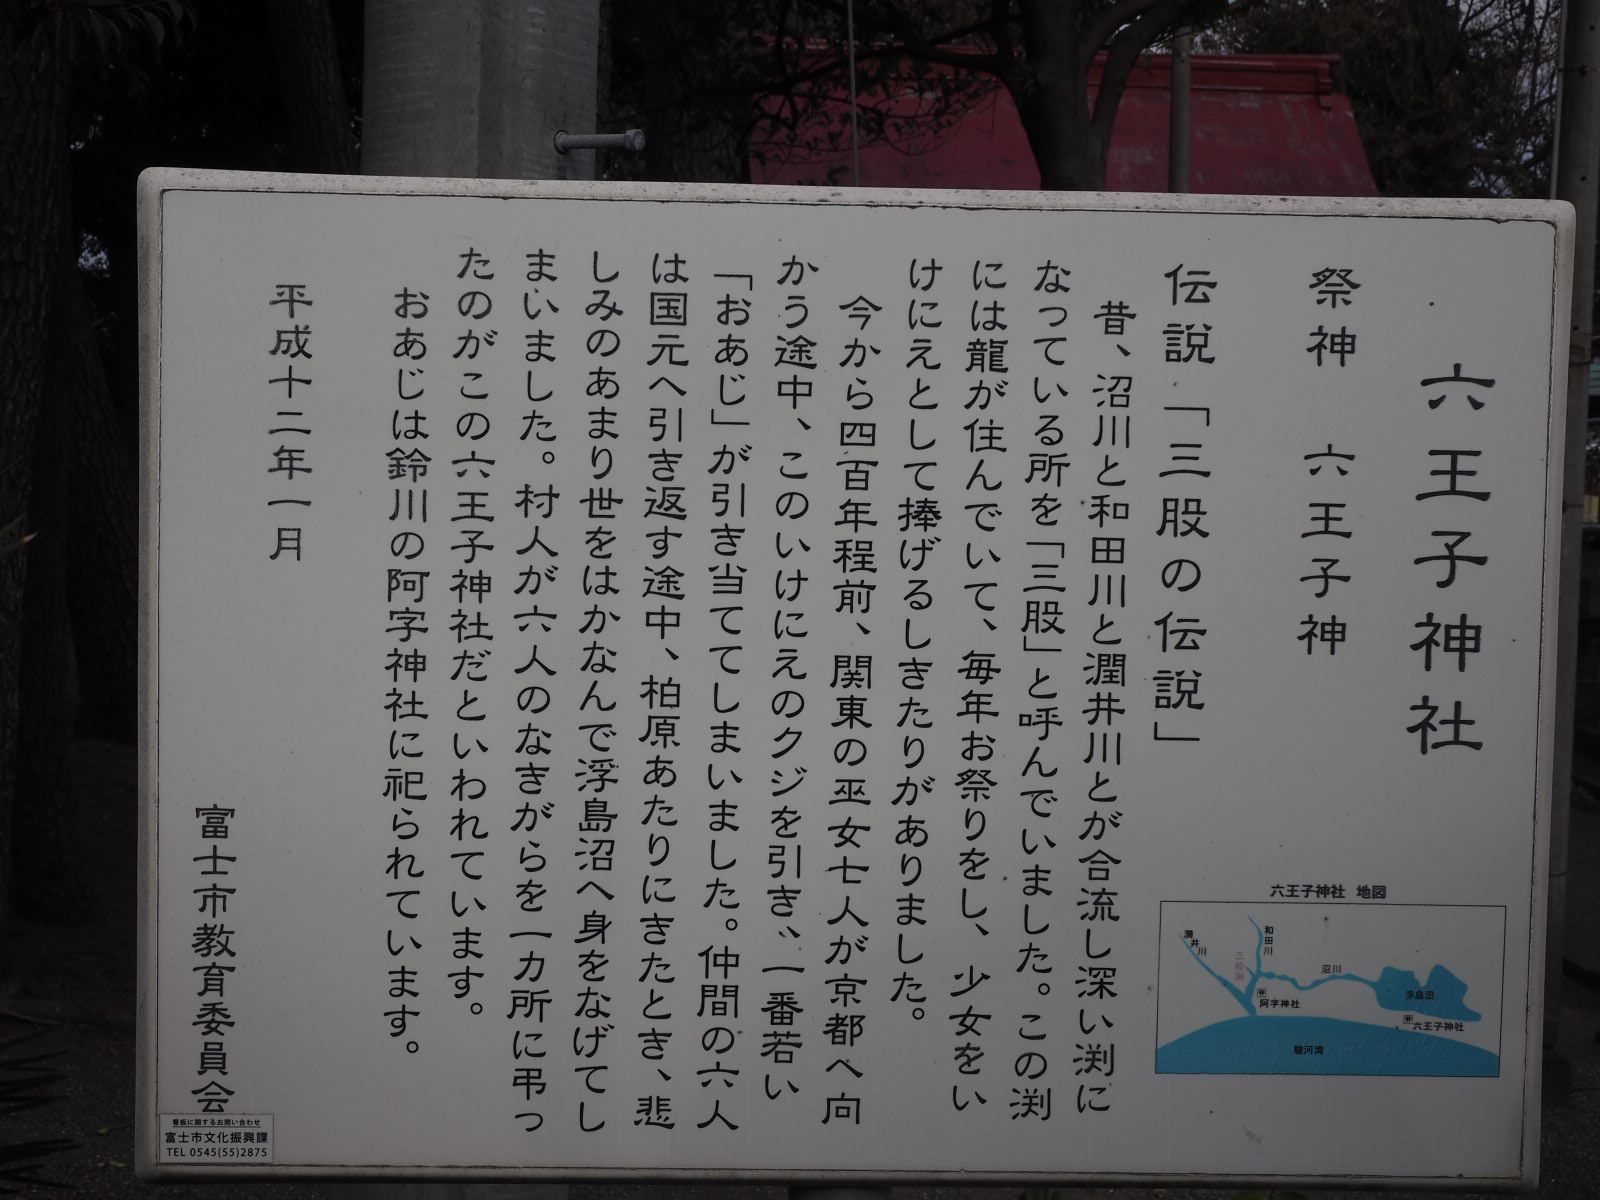 六王子神社
祭神　六王子神
伝説「三股の伝説」
昔、沼川と和田川と潤井川とが合流し深い渕に
なっている所を「三股」と呼んでいました。この渕
には龍が住んでいて、毎年お祭りをし、少女をい
けにえとして捧げるしきたりがありました。
今から四百年程前、関東の巫女七人が京都へ向
かう途中、このいけにえのクジを引き、一番若い
「おあじ」が引き当ててしまいました。仲間の六人
は国元へ引き返す途中、柏原あたりにきたとき、悲
しみのあまり世をはかなんで浮島沼へ身をなげてし
まいました。村人が六人のなきがらを一カ所に弔っ
たのがこの六王子神社だといわれています。
おあじは鈴川の阿字神社に祀られています。
平成十二年一月
富士市教育委員会
六王子神社 地図
潤井川
和田川
三股渕
沼川
浮島沼
阿字神社
六王子神社
駿河湾
看板に関するお問い合わせ
富士市文化振興課
TEL 0545(55)2875